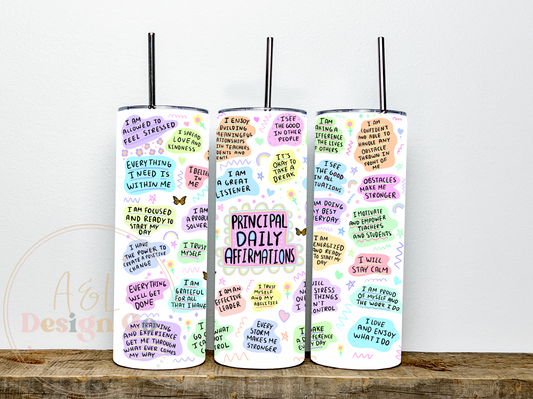 I AM
ALLOWED TO
FEEL STRESSED
I SPREAD
LOVE AND
KINDNESS
EVERYTHING
I NEED IS
WITHIN ME
I BELIEVE
IN ME
I AM FOCUSED
AND READY TO
START MY
DAY
I AM
A PROBLEM
SOLVER
I HAVE
THE POWER TO
CREATE A POSITIVE
CHANGE
I TRUST
MYSELF
EVERYTHING
WILL GET
DONE
I AM
GRATEFUL FOR
ALL THAT I HAVE
MY TRAINING
AND EXPERIENCE
GET ME THROUGH
WHAT EVER COMES
MY WAY.
I ENJOY
BUILDING
MEANINGFUL
I SEE
THE GOOD
IN OTHER
PEOPLE
I AM
A GREAT
LISTENER
IT'S
OKAY TO
TAKE A
BREAK
PRINCIPAL
DAILY
AFFIRMATIONS
I AM AN
EFFECTIVE
LEADER
I TRUST
MYSELF
AND MY
ABILITIES
EVERY
STORM
MAKES ME
STRONGER
I AM
MAKING A
DIFFERENCE
THE LIVES
OTHERS
I AM
CONFIDENT
AND ABLE TO
HANDLE ANY
OBSTACLE
THROWN IN
FRONT OF
ME
I SEE
THE GOOD
IN ALL
SITUATIONS
OBSTACLES
MAKE ME
STRONGER
I AM DOING
MY BEST
EVERYDAY
I MOTIVATE
AND EMPOWER
TEACHERS
AND STUDENTS
I AM
ENERGIZED
AND READY
TO START MY
DAY
I WILL
STAY CALM
WILL
STRESS
THINGS
CONTROL
I AM PROUD
OF MYSELF AND
THE WORK I DO
MAKE
DIFFERENCE
EVERY DAY
I LOVE
AND ENJOY
WHAT I DO
A &
Design Co